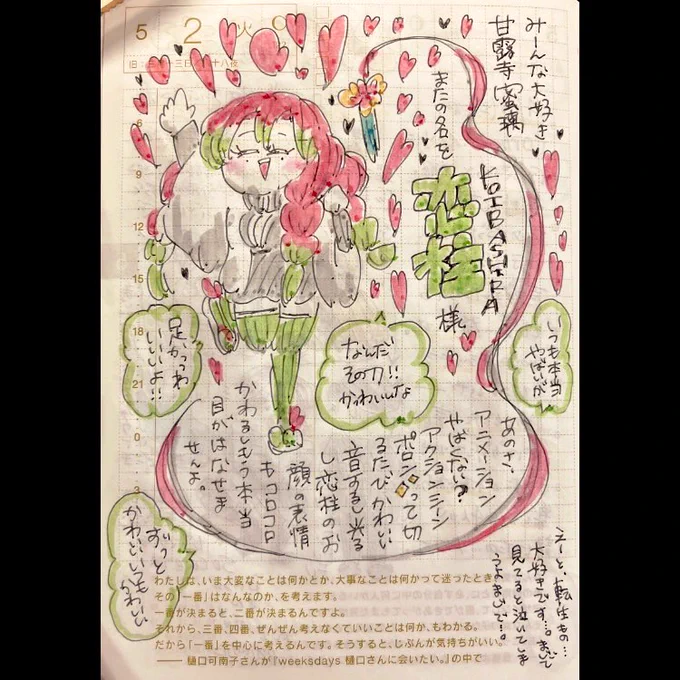 5 2 火
みーんな大好き
甘露寺蜜璃
またの名を
KOIBASHIRA
恋柱
様
いつも本当
やばいが
なんだ
その刀!!
かわいいな
足かっわ
いいよ!!
あのさ、
アニメーション
やばくない?
アクションシーン
ポロンって切
るたびかわいい
音するし光る
し恋柱のお
顔の表情
もコロコロ
かわるしもう本当
目がはなせま
せんよ。
ずっと
かわいいいつもかわいい
えーと、転生もの…
大好きです…。まじで
見てると泣いてしま
うよまじで…。
6
9
12
15
18
21
0
3
わたしは、いま大変なことは何かとか、大事なことは何かって迷ったとき、
その「一番」はなんなのか、を考えます。
一番が決まると、二番が決まるんですよ。
それから、三番、四番、ぜんぜん考えなくていいことは何か、もわかる。
だから「一番」を中心に考えるんです。そうすると、じぶんが気持ちがいい。
―― 樋口可南子さんが『weeksdays 樋口さんに会いたい。』の中で